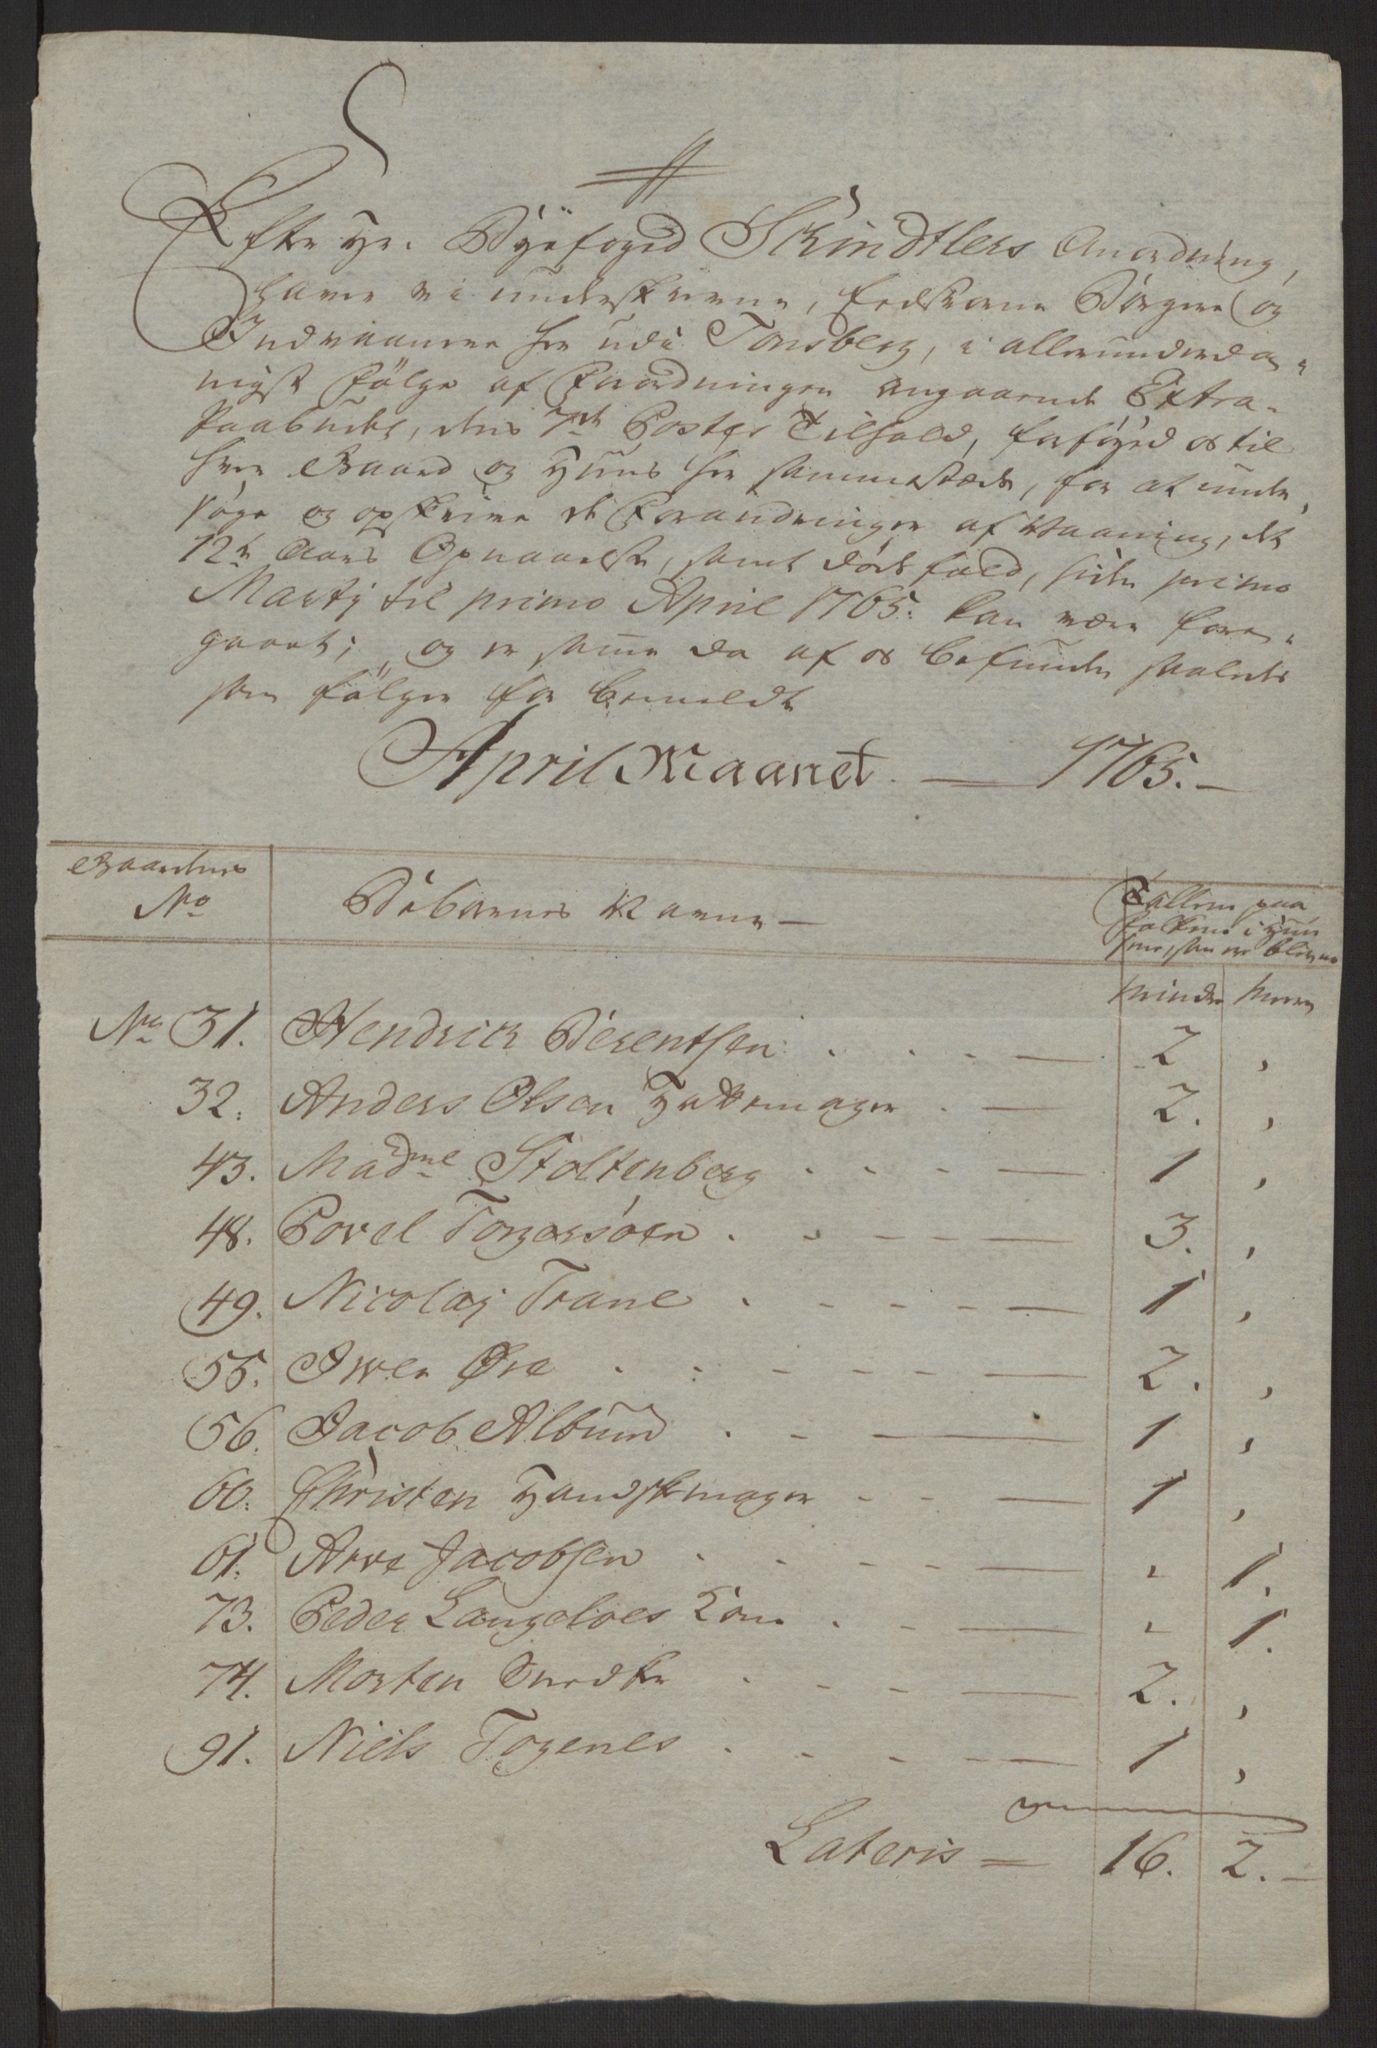 Efter Hr. Byefoged Skindtlers Anordning,
haver vi underskrevne, Eedsvorne Borgere og
Indvaanere her udi Tonsberg, i allerunderda-
nigst Følge af Forordningen angaaende Extra-
Paabudet, dens 7de Postes Tilhold, forføyed os til
hver Gaard og Huus her sammestæds, for at under-
søge og opskrive de Forandringer af Vaaning, det
12te Aars Opnaaelse, samt dødsfald, siden primo
Martij til primo April 1765. kan være fore-
gaaet; og er samme da af os befunden saaledes
som følger for bemeldte
April Maanet. — 1765. —
Gaardenes No
Beboernes Navne —
Tallene paa
Folkene i Huu-
sene, som ere bleven
mindre
meere
No 31. Hendrick Berentsen . . . — 2 ,
32. Anders Olsen Hattemager . — 2. ,
43. Madme Stoltenberg . . . — 1 ,
48. Povel Torgersøen . . - - — 3. ,
49. Nicolaj Trane . - - - — 1 ,
55. Iwer Øre . . - - - - — 2. ,
56. Jacob Album . - — 1 ,
60. Christen Handskemager - - — 1 ,
61. Arve Jacobsen . . - - - — , 1.
73. Peder Langeloes Kone . - - — , 1.
74. Morten Snedker . - - — 2. ,
91. Niels Togenes . - - - — 1 ,
Lateris = 16. 2. —